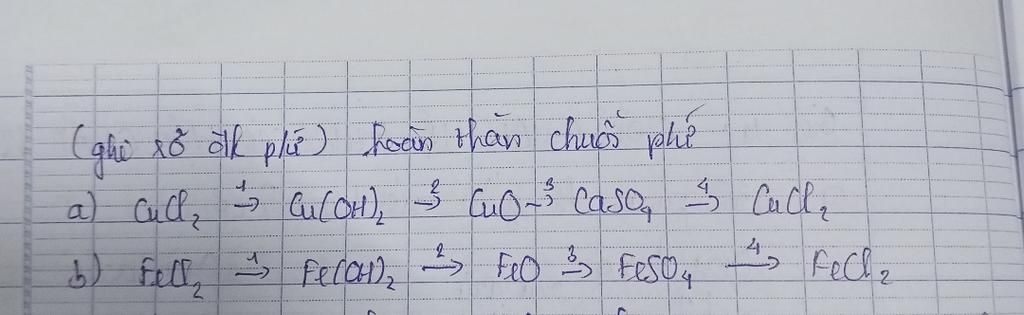 (ghi rõ đk pứ) hoàn thàn chuỗi pứ
a) CuCl₂ →¹ Cu(OH)₂ →² CuO →³ CuSO₄ →⁴ CuCl₂
b) FeCl₂ →¹ Fe(OH)₂ →² FeO →³ FeSO₄ →⁴ FeCl₂